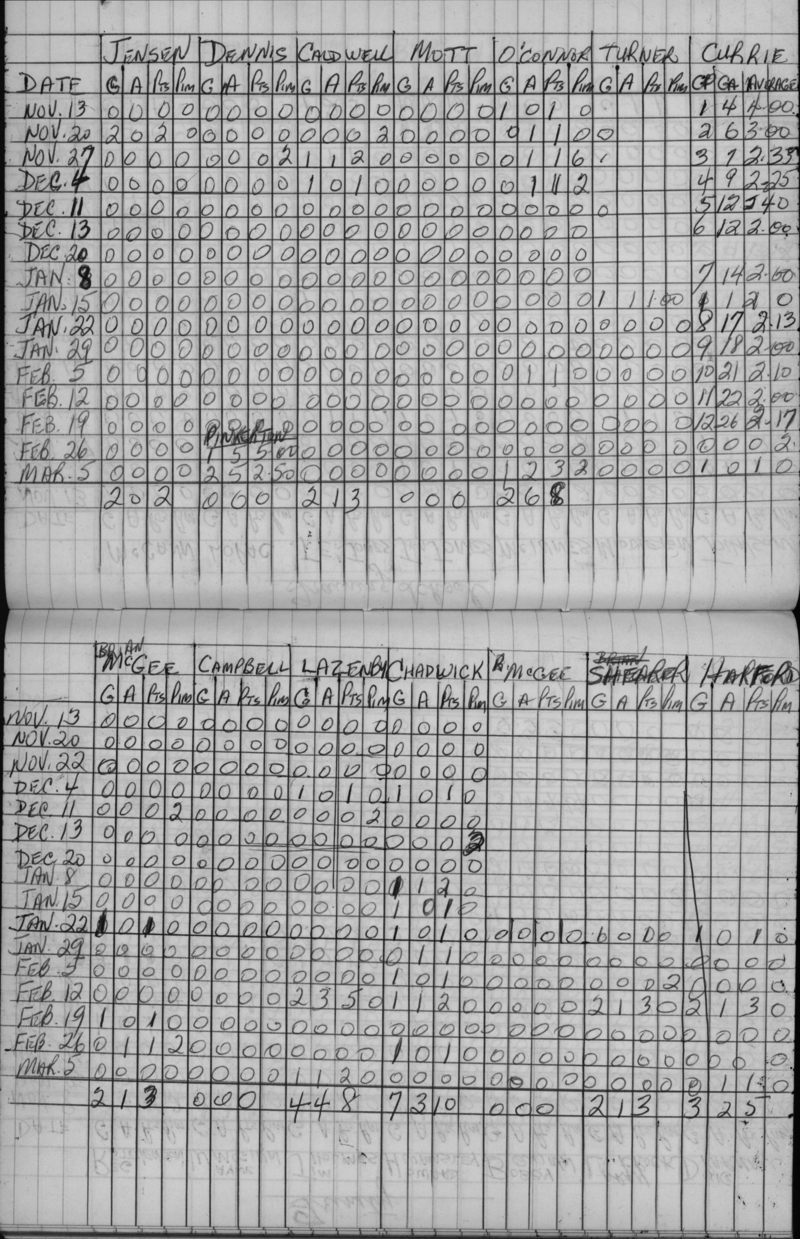 JENSEN DENNIS CALDWELL MOTT O'CONNOR TURNER CURRIE
DATE G A Pts Pim G A Pts Pim G A Pts Pim G A Pts Pim G A Pts Pim G A Pts Pim GP GA AVERAGE
NOV. 13 0 0 0 0 0 0 0 0 0 0 0 0 0 0 0 0 1 0 1 0 1 4 4.00
NOV. 20 2 0 2 0 0 0 0 0 0 0 0 2 0 0 0 0 0 1 1 0 0 2 6 3.00
NOV. 27 0 0 0 0 0 0 0 2 1 1 2 0 0 0 0 0 0 1 1 6 3 7 2.33
DEC. 4 0 0 0 0 0 0 0 0 1 0 1 0 0 0 0 0 0 1 1 2 4 9 2.25
DEC. 11 0 0 0 0 0 0 0 0 0 0 0 0 0 0 0 0 0 0 0 0 0 5 12 2.40
DEC. 13 0 0 0 0 0 0 0 0 0 0 0 0 0 0 0 0 0 0 0 0 6 12 2.00
DEC 20 0 0 0 0 0 0 0 0 0 0 0 0 0 0 0 0 0 0 0 0
JAN. 8 0 0 0 0 0 0 0 0 0 0 0 0 0 0 0 0 0 0 0 0 7 14 2.00
JAN. 15 0 0 0 0 0 0 0 0 0 0 0 0 0 0 0 0 0 0 0 0 1 1 1.00 1 1 0
JAN. 22 0 0 0 0 0 0 0 0 0 0 0 0 0 0 0 0 0 0 0 0 0 0 0 0 8 17 2.13
JAN. 29 0 0 0 0 0 0 0 0 0 0 0 0 0 0 0 0 0 0 0 0 0 0 0 0 9 18 2.00
FEB. 5 0 0 0 0 0 0 0 0 0 0 0 0 0 0 0 0 0 1 1 0 0 0 0 0 10 21 2.10
FEB. 12 0 0 0 0 0 0 0 0 0 0 0 0 0 0 0 0 0 0 0 0 0 0 0 0 11 22 2.00
FEB. 19 0 0 0 0 0 0 0 0 0 0 0 0 0 0 0 0 0 0 0 0 0 0 0 12 26 2.17
PINKERTON
FEB. 26 0 0 0 0 1 5 5.00 0 0 0 0 0 0 0 0 0 0 0 0 0 0 0 0 0 0 0 2.
MAR. 5 0 0 0 0 2 5 2.50 0 0 0 0 0 0 0 0 1 2 3 2 0 0 0 0 1 0 1 0
2 0 2 0 0 0 2 1 3 0 0 0 2 6 8
BRIAN
McGEE CAMPBELL LAZENBY CHADWICK R McGEE SHEARER HARFERD
G A Pts Pim G A Pts Pim G A Pts Pim G A Pts Pim G A Pts Pim G A Pts Pim G A Pts Pim
NOV. 13 0 0 0 0 0 0 0 0 0 0 0 0 0 0 0 0
NOV. 20 0 0 0 0 0 0 0 0 0 0 0 0 0 0 0 0
NOV. 22 0 0 0 0 0 0 0 0 0 0 0 0 0 0 0 0
DEC. 4 0 0 0 0 0 0 0 0 1 0 1 0 1 0 1 0
DEC 11 0 0 0 2 0 0 0 0 0 0 0 2 0 0 0 0
DEC. 13 0 0 0 0 0 0 0 0 0 0 0 0 0 0 0 2
DEC 20 0 0 0 0 0 0 0 0 0 0 0 0 0 0 0 0
JAN 8 0 0 0 0 0 0 0 0 0 0 0 0 1 1 2 0
JAN. 15 0 0 0 0 0 0 0 0 0 0 0 0 1 0 1 0
JAN. 22 1 0 1 0 0 0 0 0 0 0 0 0 1 0 1 0 0 0 0 0 0 0 0 0 1 0 1 0
JAN. 29 0 0 0 0 0 0 0 0 0 0 0 0 0 1 1 0 0 0 0 0 0 0 0 0 0 0 0 0
FEB. 5 0 0 0 0 0 0 0 0 0 0 0 0 1 0 1 0 0 0 0 0 0 0 0 2 0 0 0 0
FEB. 12 0 0 0 0 0 0 0 0 2 3 5 0 1 1 2 0 0 0 0 0 2 1 3 0 2 1 3 0
FEB. 19 1 0 1 0 0 0 0 0 0 0 0 0 0 0 0 0 0 0 0 0 0 0 0 0 0 0 0 0
FEB. 26 0 1 1 2 0 0 0 0 0 0 0 0 1 0 1 0 0 0 0 0 0 0 0 0 0 0 0
MAR. 5 0 0 0 0 0 0 0 0 1 1 2 0 0 0 0 0 0 0 0 0 0 0 0 0 0 1 1 0
2 1 3 0 0 0 4 4 8 7 3 10 0 0 0 2 1 3 3 2 5